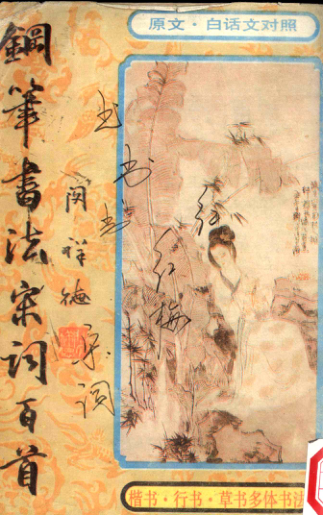 原文·白话文对照
鋼筆書法宋词百首
闵祥德
书
书
宋词
红梅
楷书·行书·草书多体书法